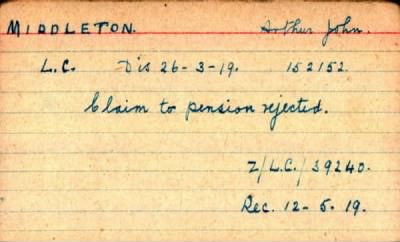 MIDDLETON. Arthur John.
L.C. Dis 26-3-19. 152152.
Claim to pension rejected.
7/L.C./39240.
Rec. 12-5.19.